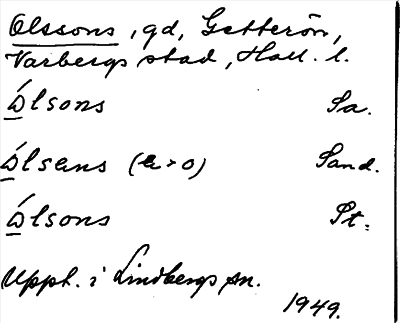 Olssons, gd, Getterön,
Varbergs stad, Hall. l.
Ólsons Sa.
Ólsens (e > o) Sand.
Ólsons St.
Upph. i Lindbergs sn.
1949.